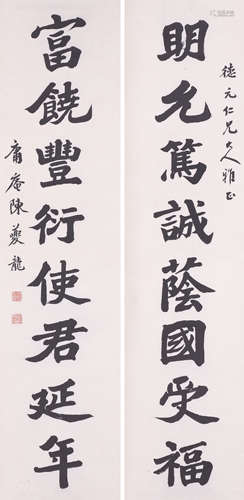 德元仁兄大人雅正
明允篤誠蔭國受福
富饒豐衍使君延年
庸庵陳夔龍